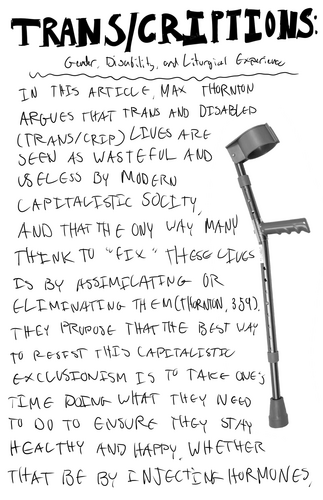 TRANS/CRIPTIONS:
Gender, Disability, and Liturgical Experience
IN THIS ARTICLE, MAX THORNTON
ARGUES THAT TRANS AND DISABLED
(TRANS/CRIP) LIVES ARE
SEEN AS WASTEFUL AND
USELESS BY MODERN
CAPITALISTIC SOCITY,
AND THAT THE ONY WAY MANY
THINK TO "FIX" THESE LIVES
IS BY ASSIMILATING OR
ELIMINATING THEM (THORNTON, 359).
THEY PROPOSE THAT THE BEST WAY
TO RESIST THIS CAPITALISTIC
EXCLUSIONISM IS TO TAKE ONE'S
TIME DOING WHAT THEY NEED
TO DO TO ENSURE THEY STAY
HEALTHY AND HAPPY, WHETHER
THAT BE BY INJECTING HORMONES,